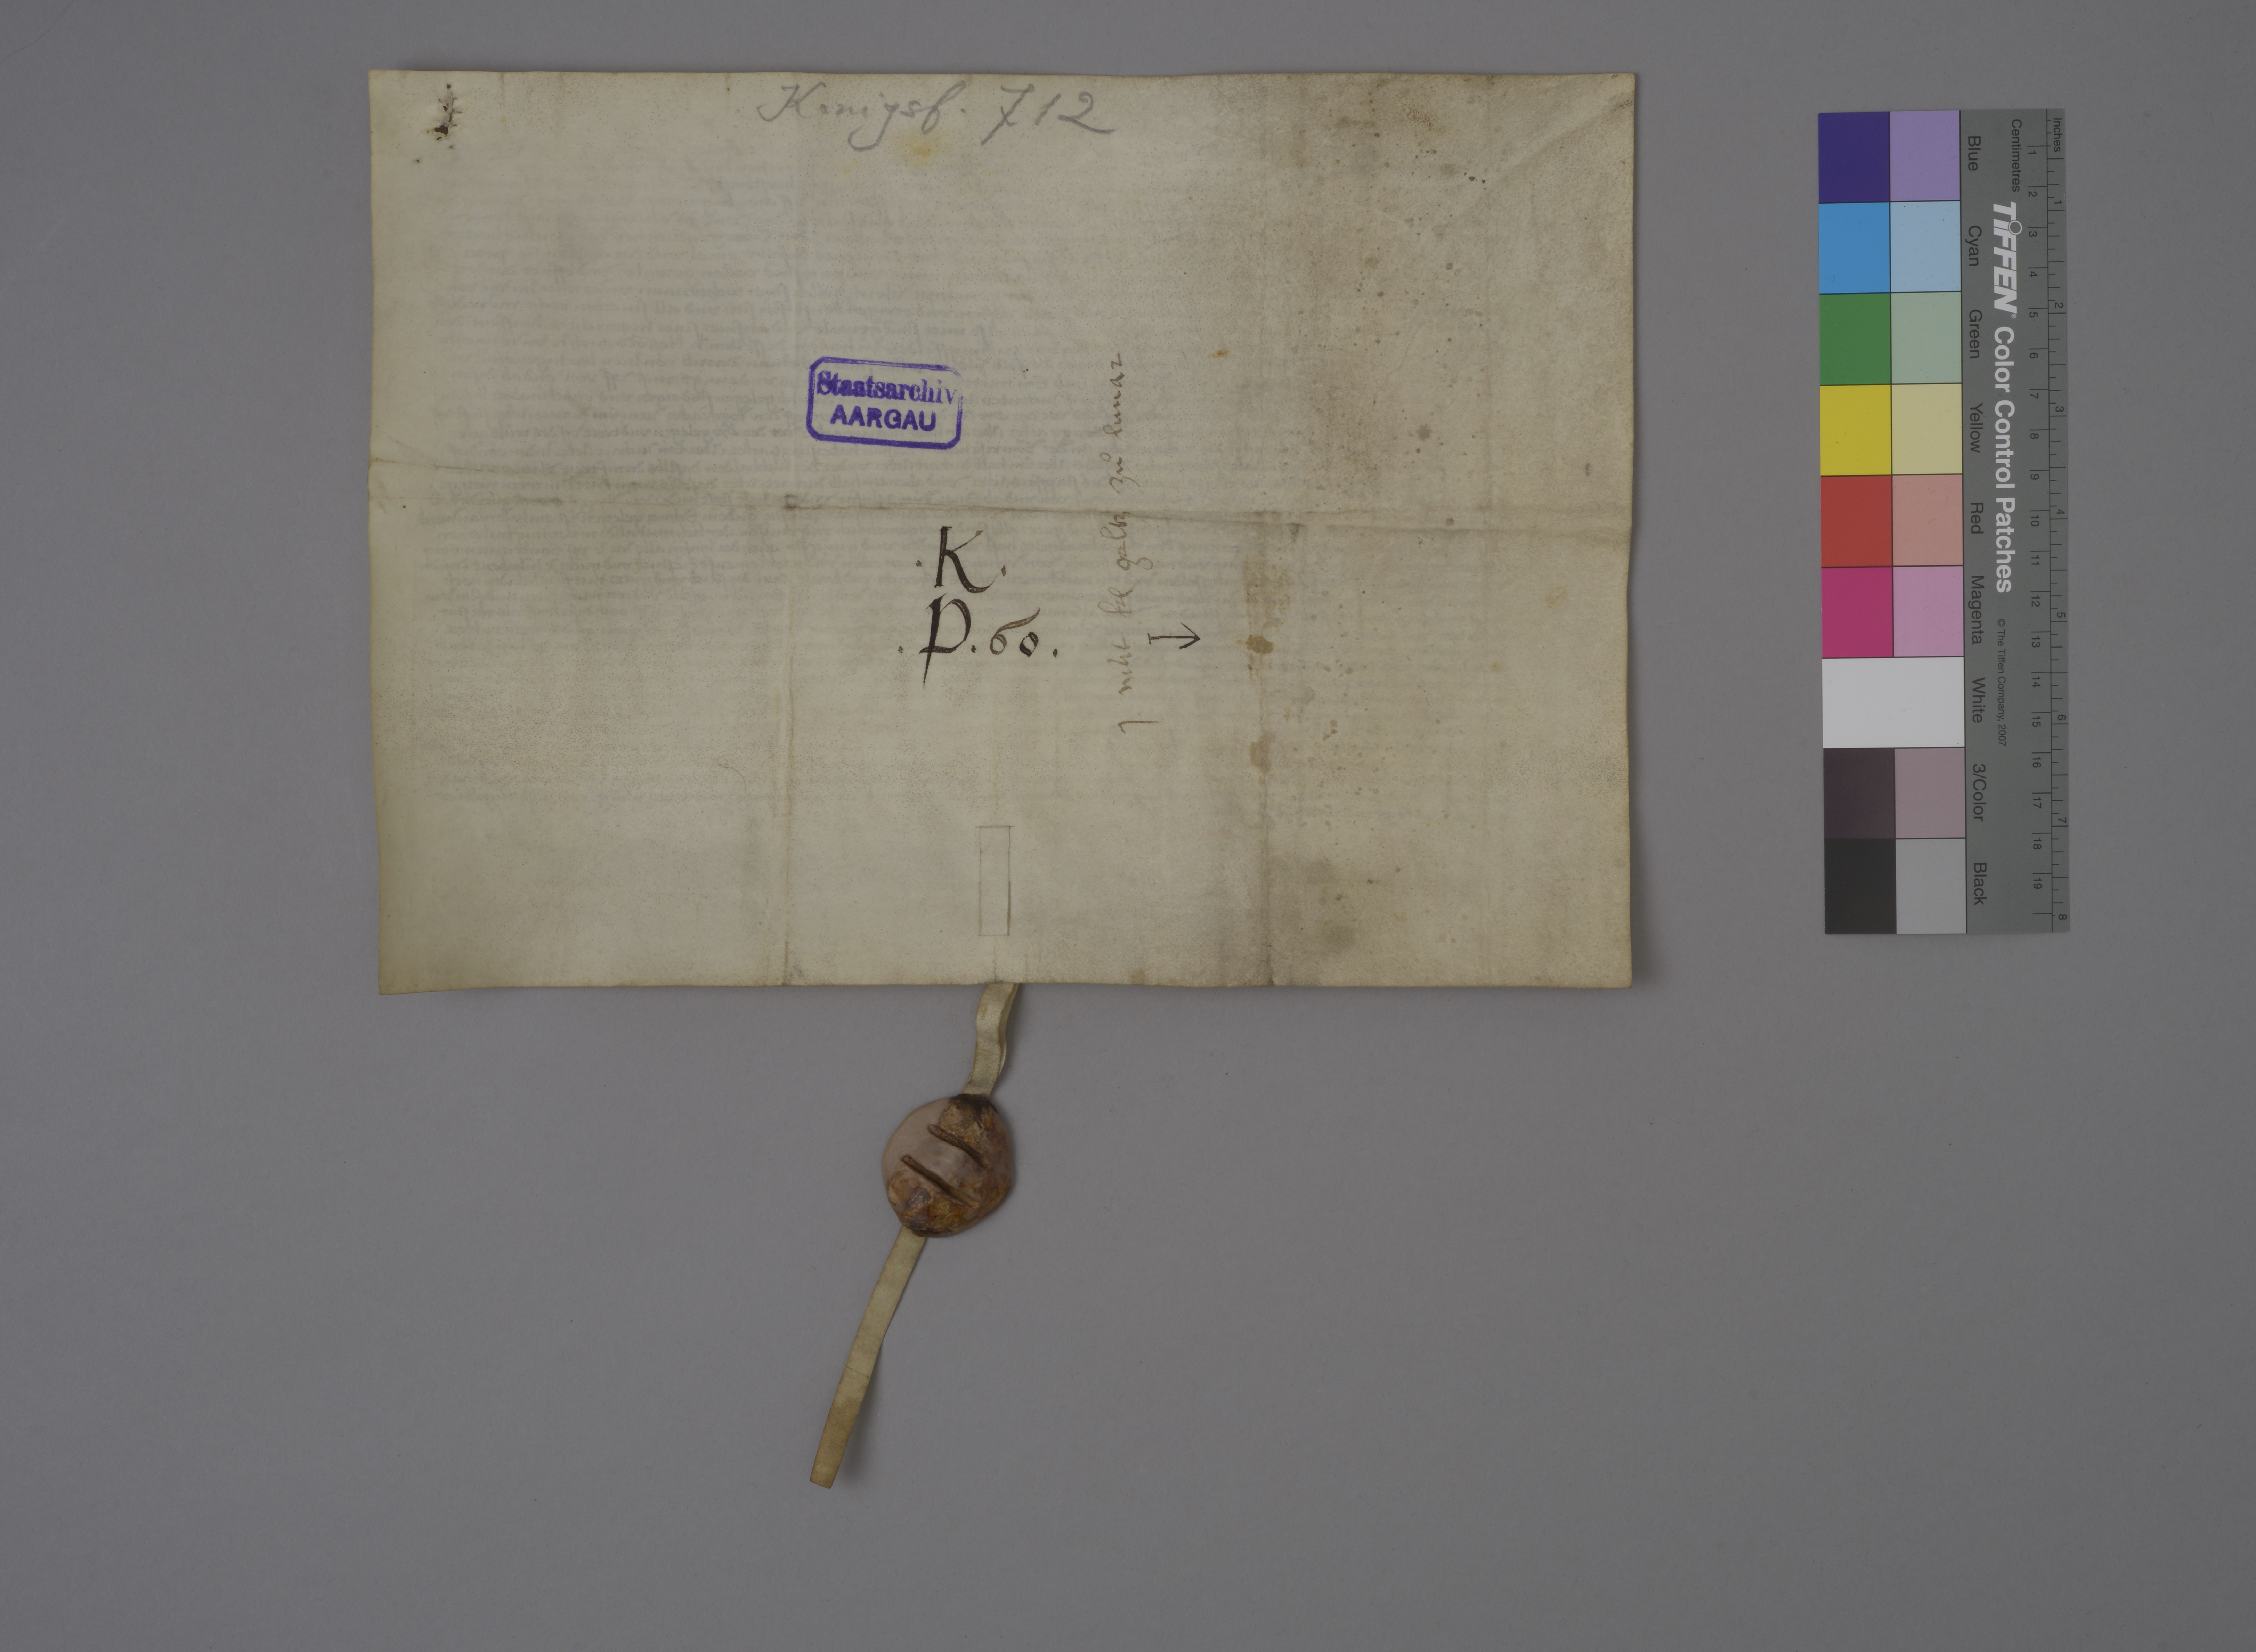 Königsf. 712
Staatsarchiv
AARGAU
.K.
.P.60.
1 mút kń geltz zů lunar
Inches
Centimetres
1 2 3 4 5 6 7 8 9 10 11 12 13 14 15 16 17 18 19
1 2 3 4 5 6 7 8
TIFFEN Color Control Patches
© The Tiffen Company, 2007
Blue
Cyan
Green
Yellow
Red
Magenta
White
3/Color
Black